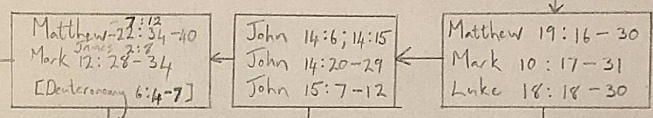 7:12
Matthew 22:34-40
James 2:8
Mark 12:28-34
[Deuteronomy 6:4-7]
John 14:6; 14:15
John 14:20-29
John 15:7-12
Matthew 19:16-30
Mark 10:17-31
Luke 18:18-30